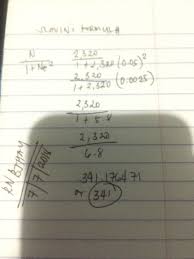 SLOVIN'S FORMULA
N / 1 + Ne² 2,320 / 1 + 2,320 (0.05)²
2,320 / 1 + 2,320 (0.0025)
2,320 / 1 + 5.8
2,320 / 6.8
341.176471
or 341